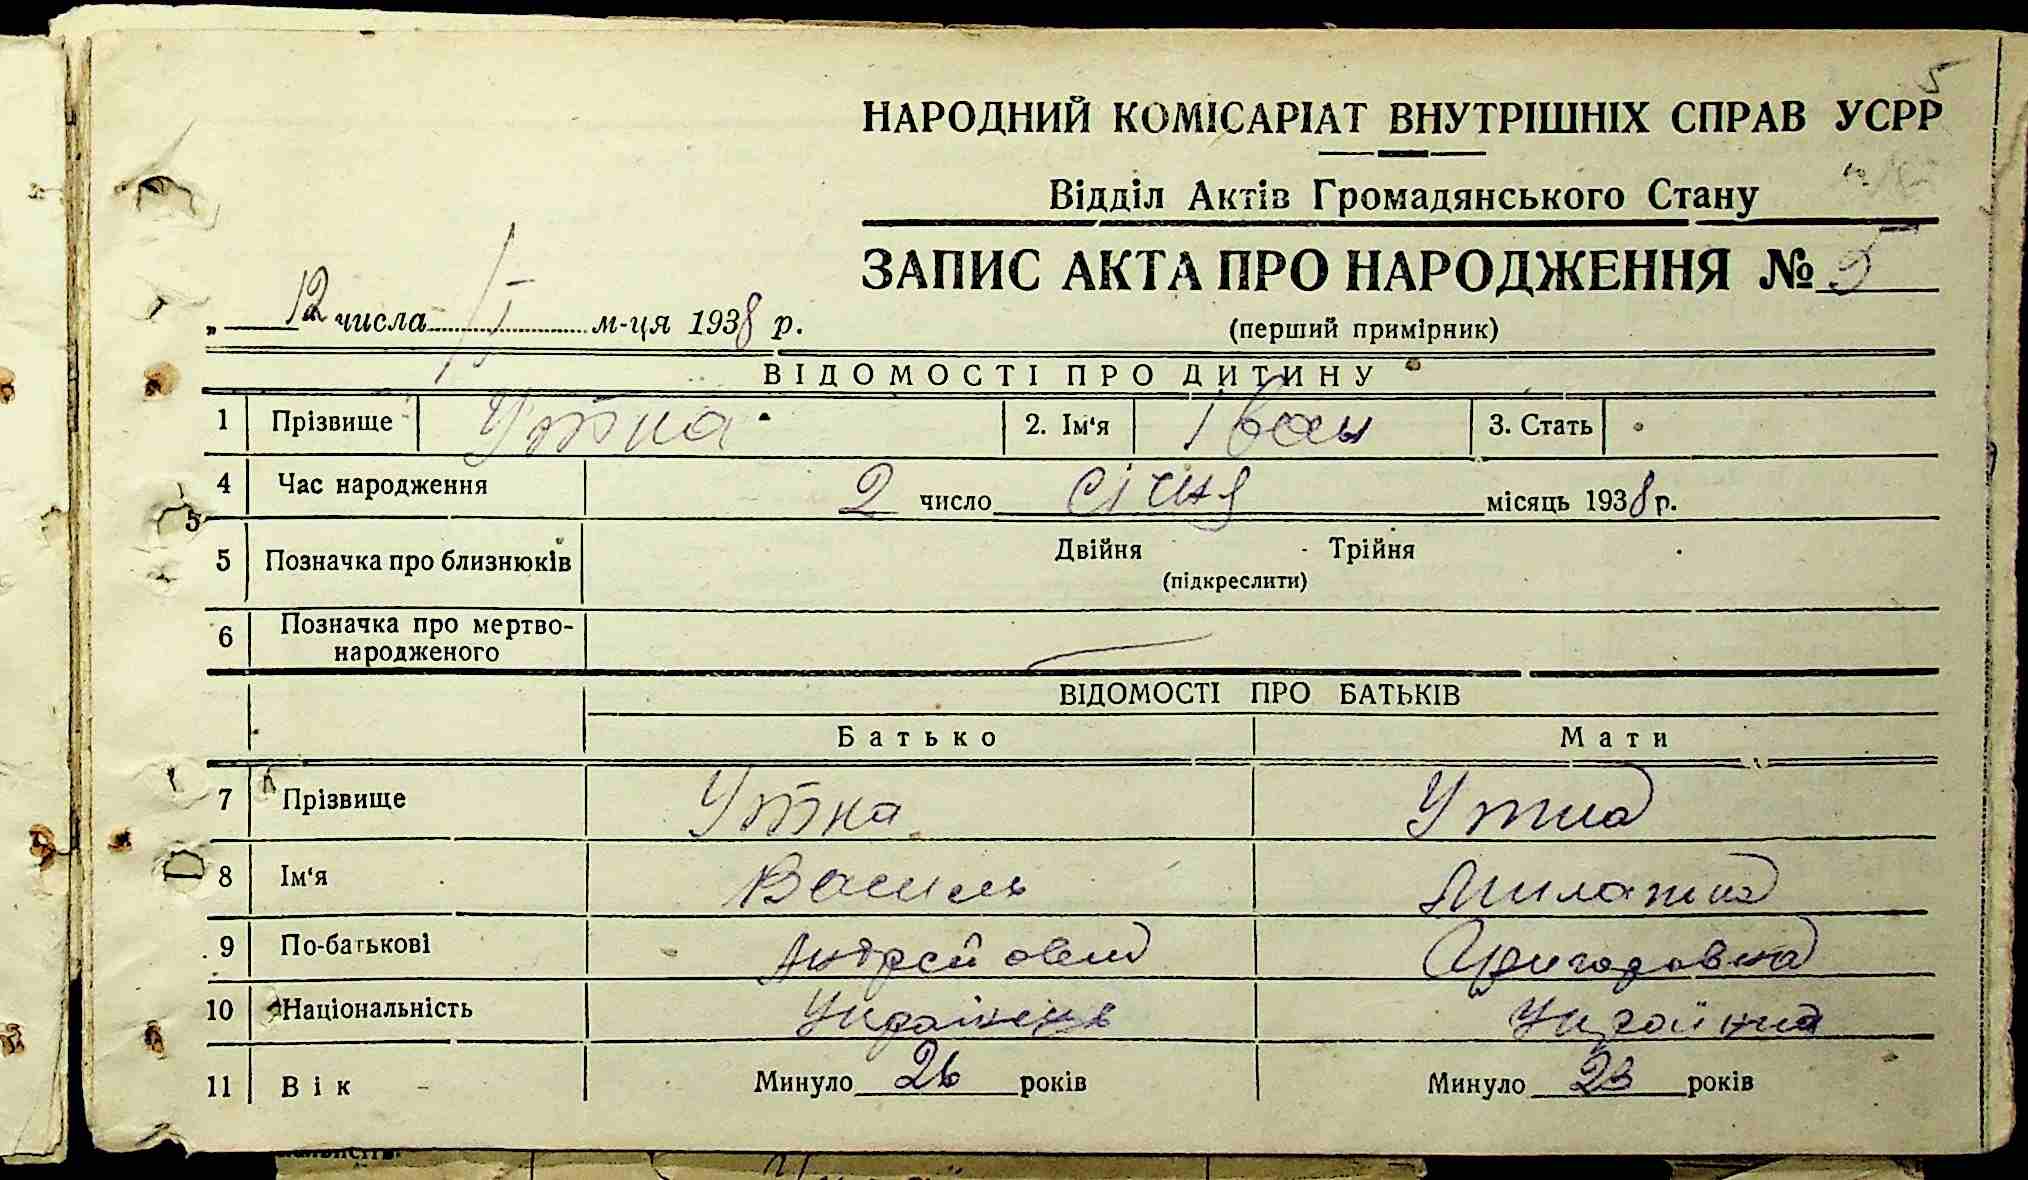 5
НАРОДНИЙ КОМІСАРІАТ ВНУТРІШНІХ СПРАВ УСРР
Відділ Актів Громадянського Стану
ЗАПИС АКТА ПРО НАРОДЖЕННЯ № 5
„ 12 числа I м-ця 1938 р.
(перший примірник)
ВІДОМОСТІ ПРО ДИТИНУ
1 Прізвище Утка 2. Ім'я Іван 3. Стать
4 Час народження 2 число січня місяць 1938 р.
5 Позначка про близнюків Двійня Трійня
(підкреслити)
6 Позначка про мертво-
народженого
ВІДОМОСТІ ПРО БАТЬКІВ
Батько Мати
7 Прізвище Утка Утка
8 Ім'я Василь Милашка
9 По-батькові Андрейович Григоровна
10 Національність Українець Українка
11 Вік Минуло 26 років Минуло 23 років